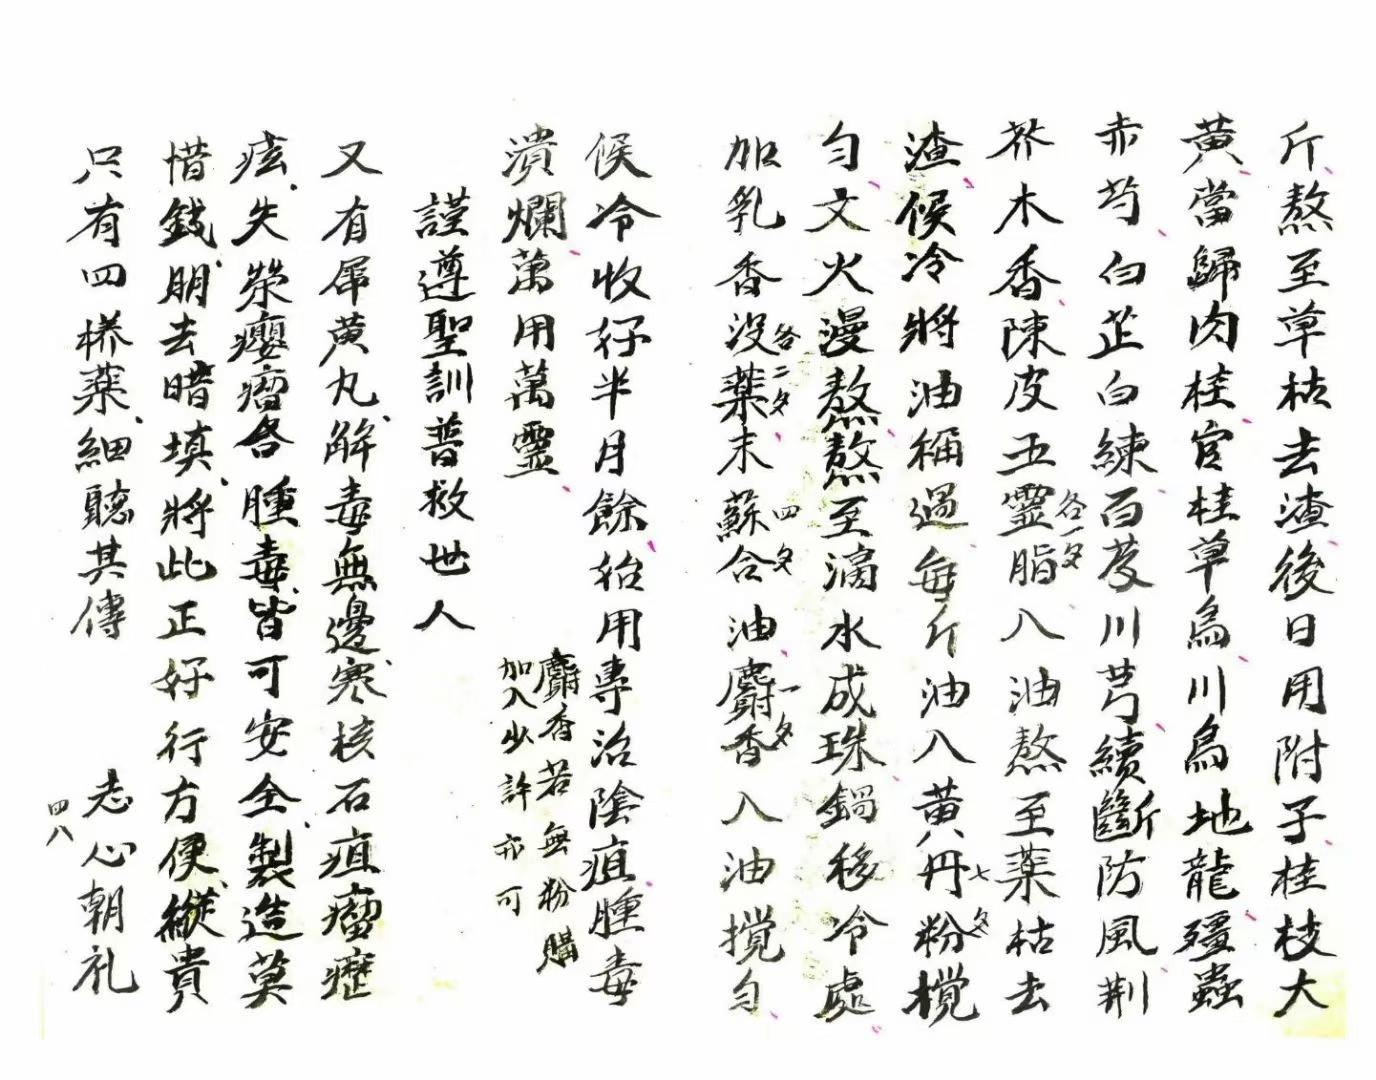 斤熬至草枯去渣後日用附子桂枝大
黄當歸肉桂官桂草烏川烏地龍殭蟲
赤芍白芷白練百芨川芎續斷防風荆
芥木香陳皮五靈脂各一匁八油熬至藥枯去
渣候冷將油稱過每斤油入黄丹粉七匁攪
勻文火漫熬熬至滴水成珠鍋移冷處
加乳香沒藥末各二匁蘇合油四匁麝香一匁入油攪勻
候冷收好半月餘始用專治陰疽腫毒
潰爛萬用萬靈
麝香若無粉購
加入少許亦可
謹遵聖訓普救世人
又有犀黄丸解毒無邊寒核石疽瘤癧
痃失荣癭瘤各腫毒皆可安全製造莫
惜錢朋去暗填將此正好行方便縱貴
只有四樣藥細聽其傳
志心朝礼
四八